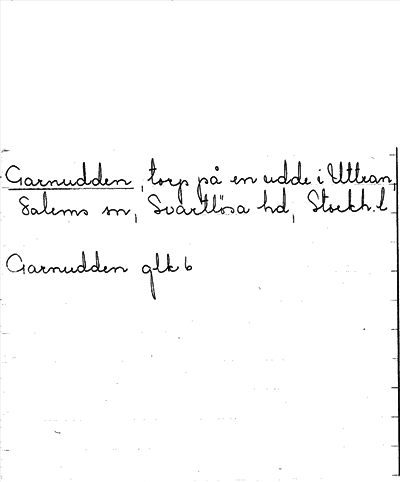 Garnudden, torp på en udde i Uttran,
Salems sn, Svartlösa hd, Stockh. l
Garnudden glk 6